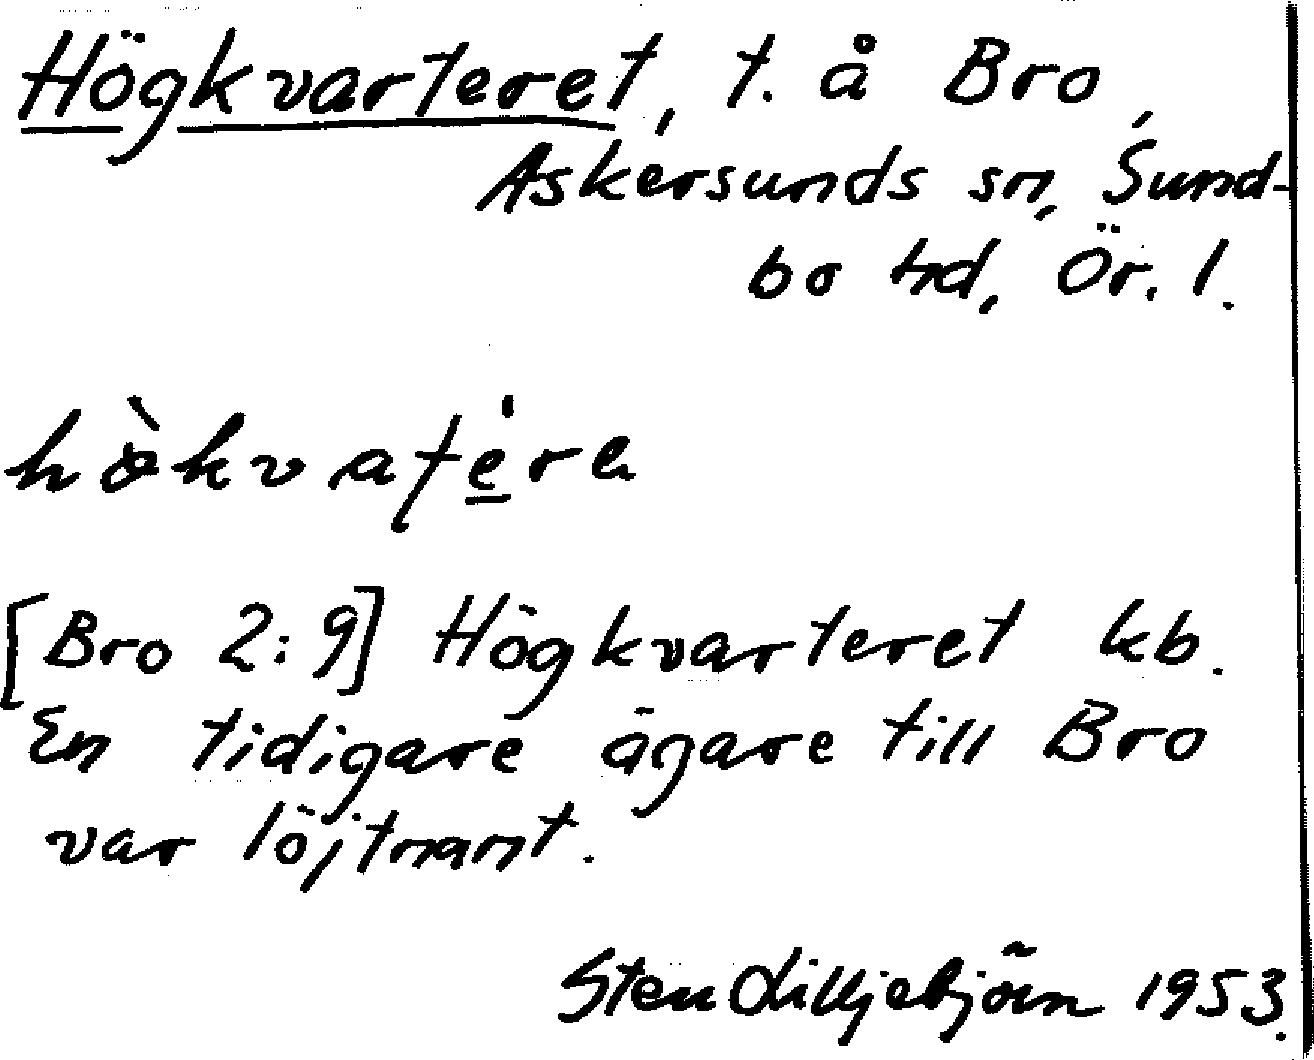 Högkvarteret, t. å Bro,
Askersunds sn, Sund-
bo hd, Ör. l.
hökvatera
[Bro 2:9] Högkvarteret kb.
En tidigare ägare till Bro
var löjtnant.
Sten Lilljebjörn 1953.